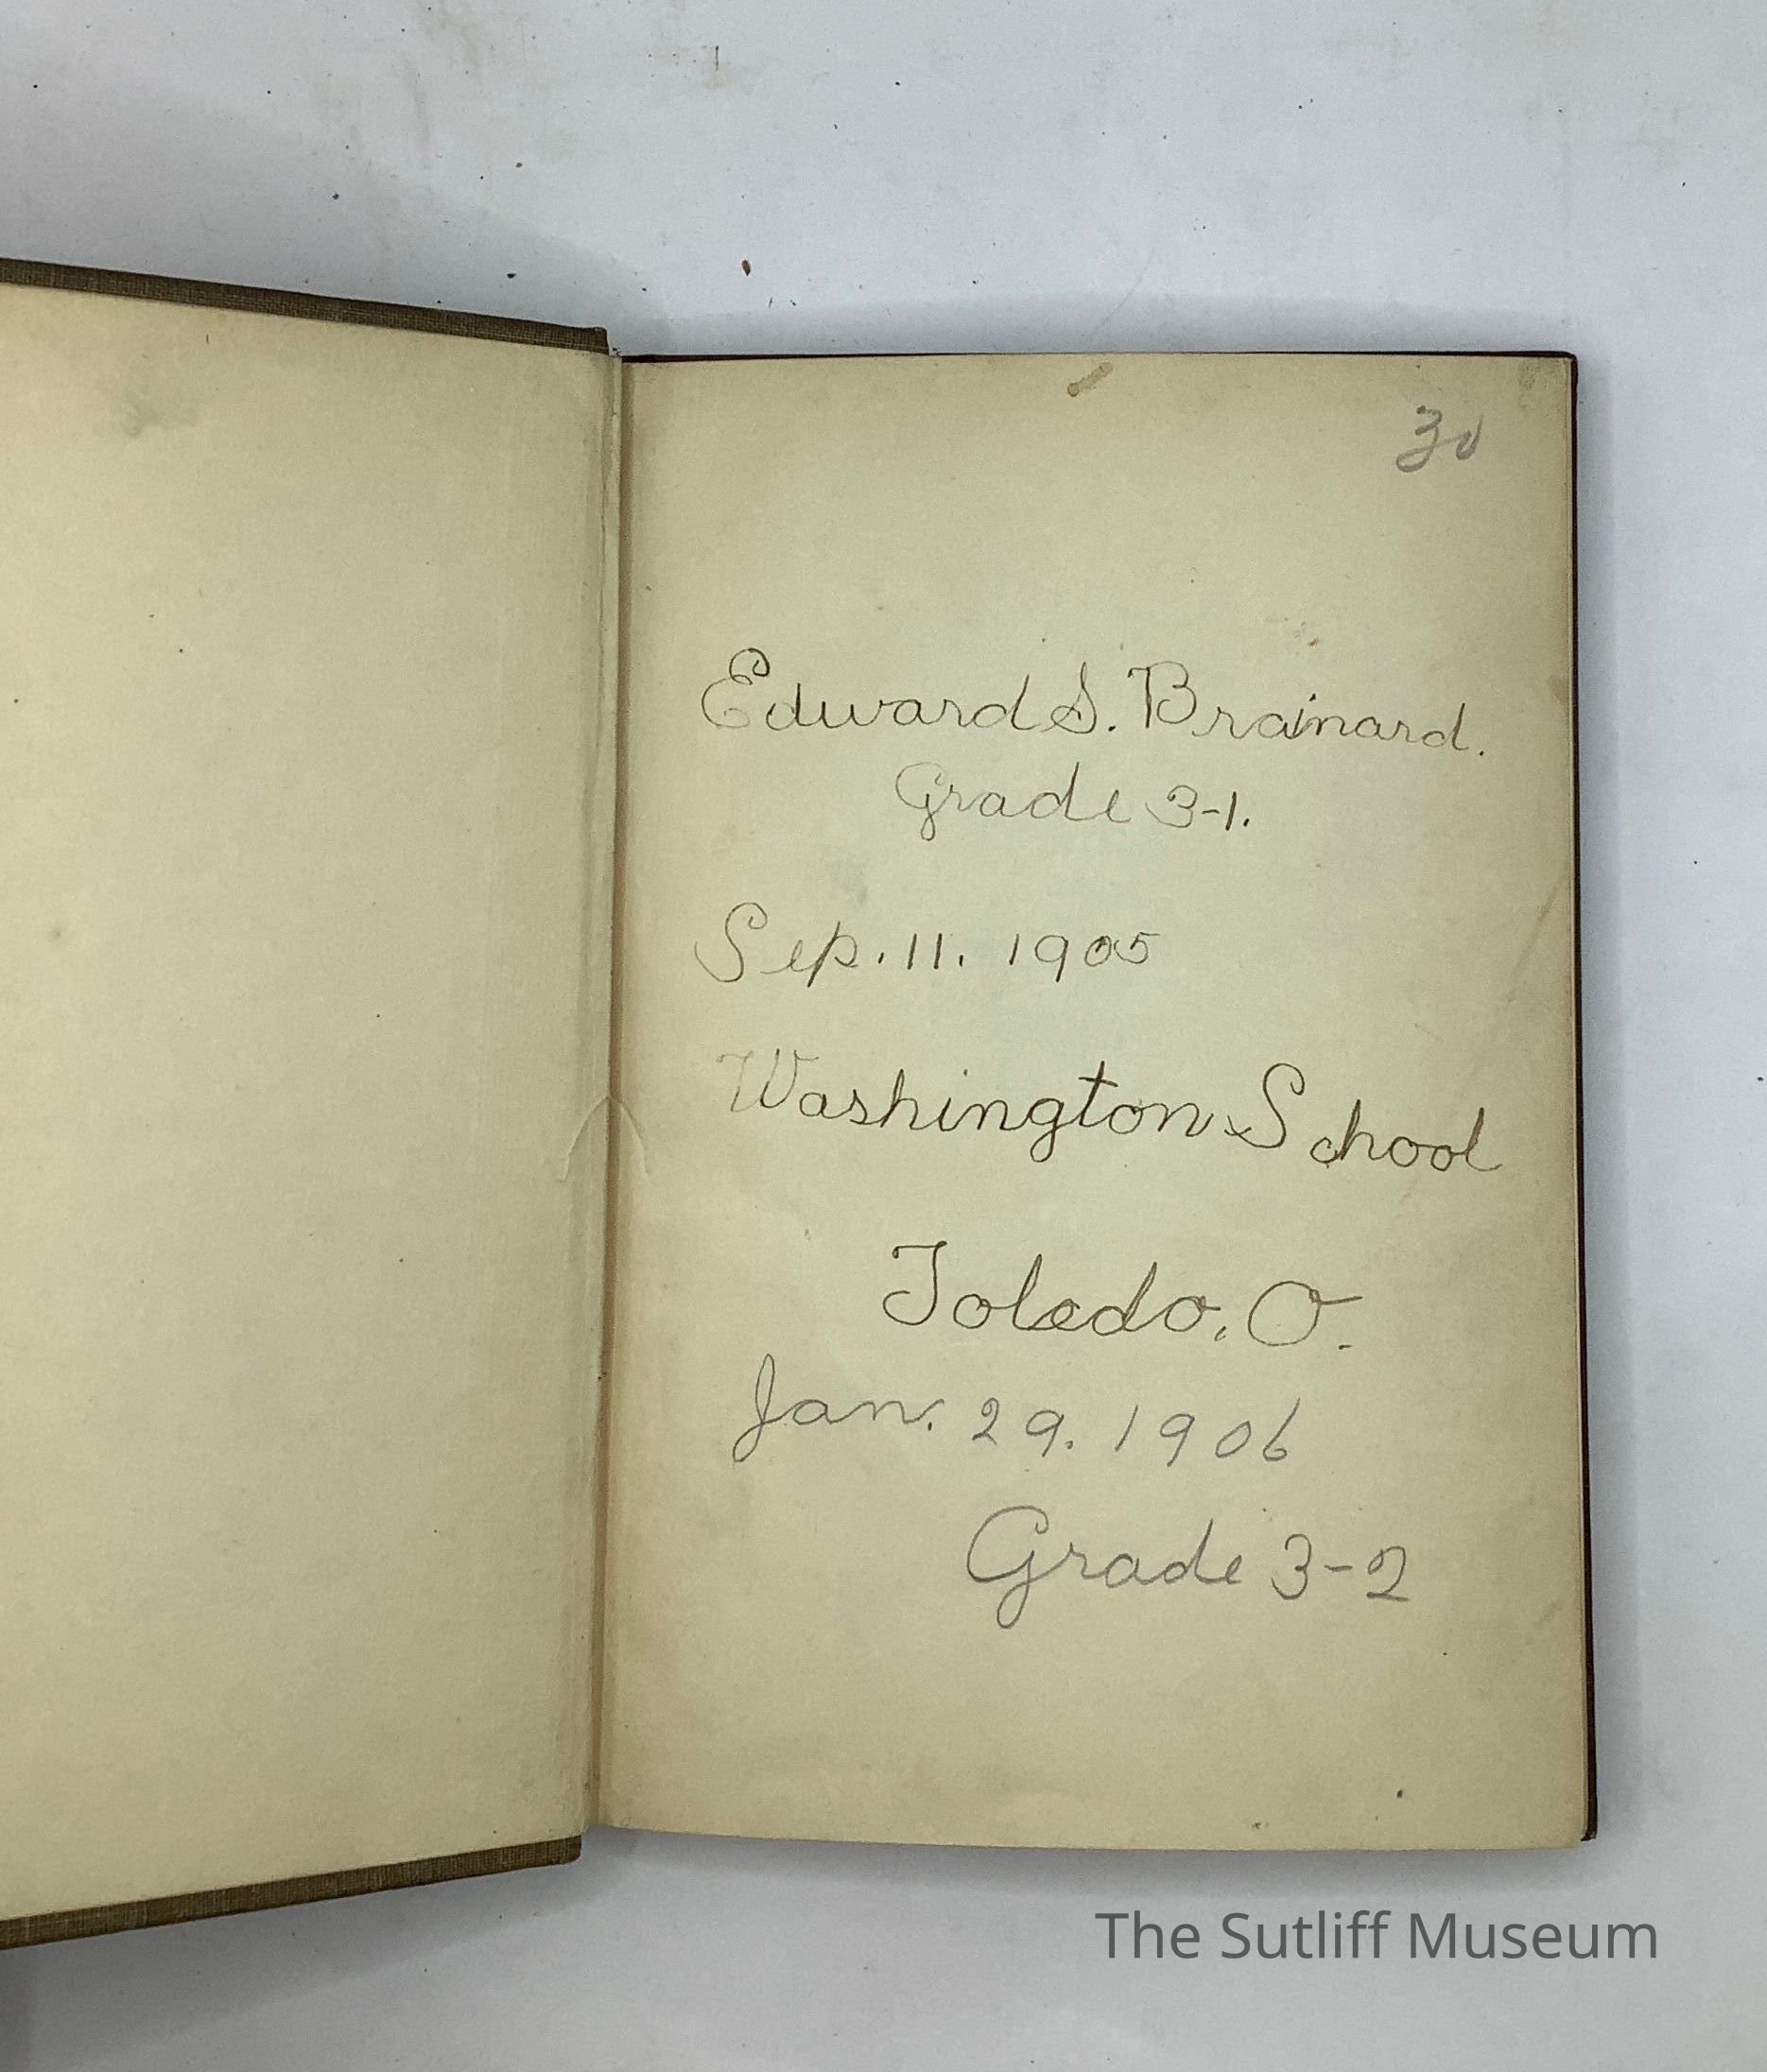 30
Edward S. Brainard.
Grade 3-1.
Sep. 11. 1905
Washington School
Toledo, O.
Jan. 29. 1906
Grade 3-2
The Sutliff Museum